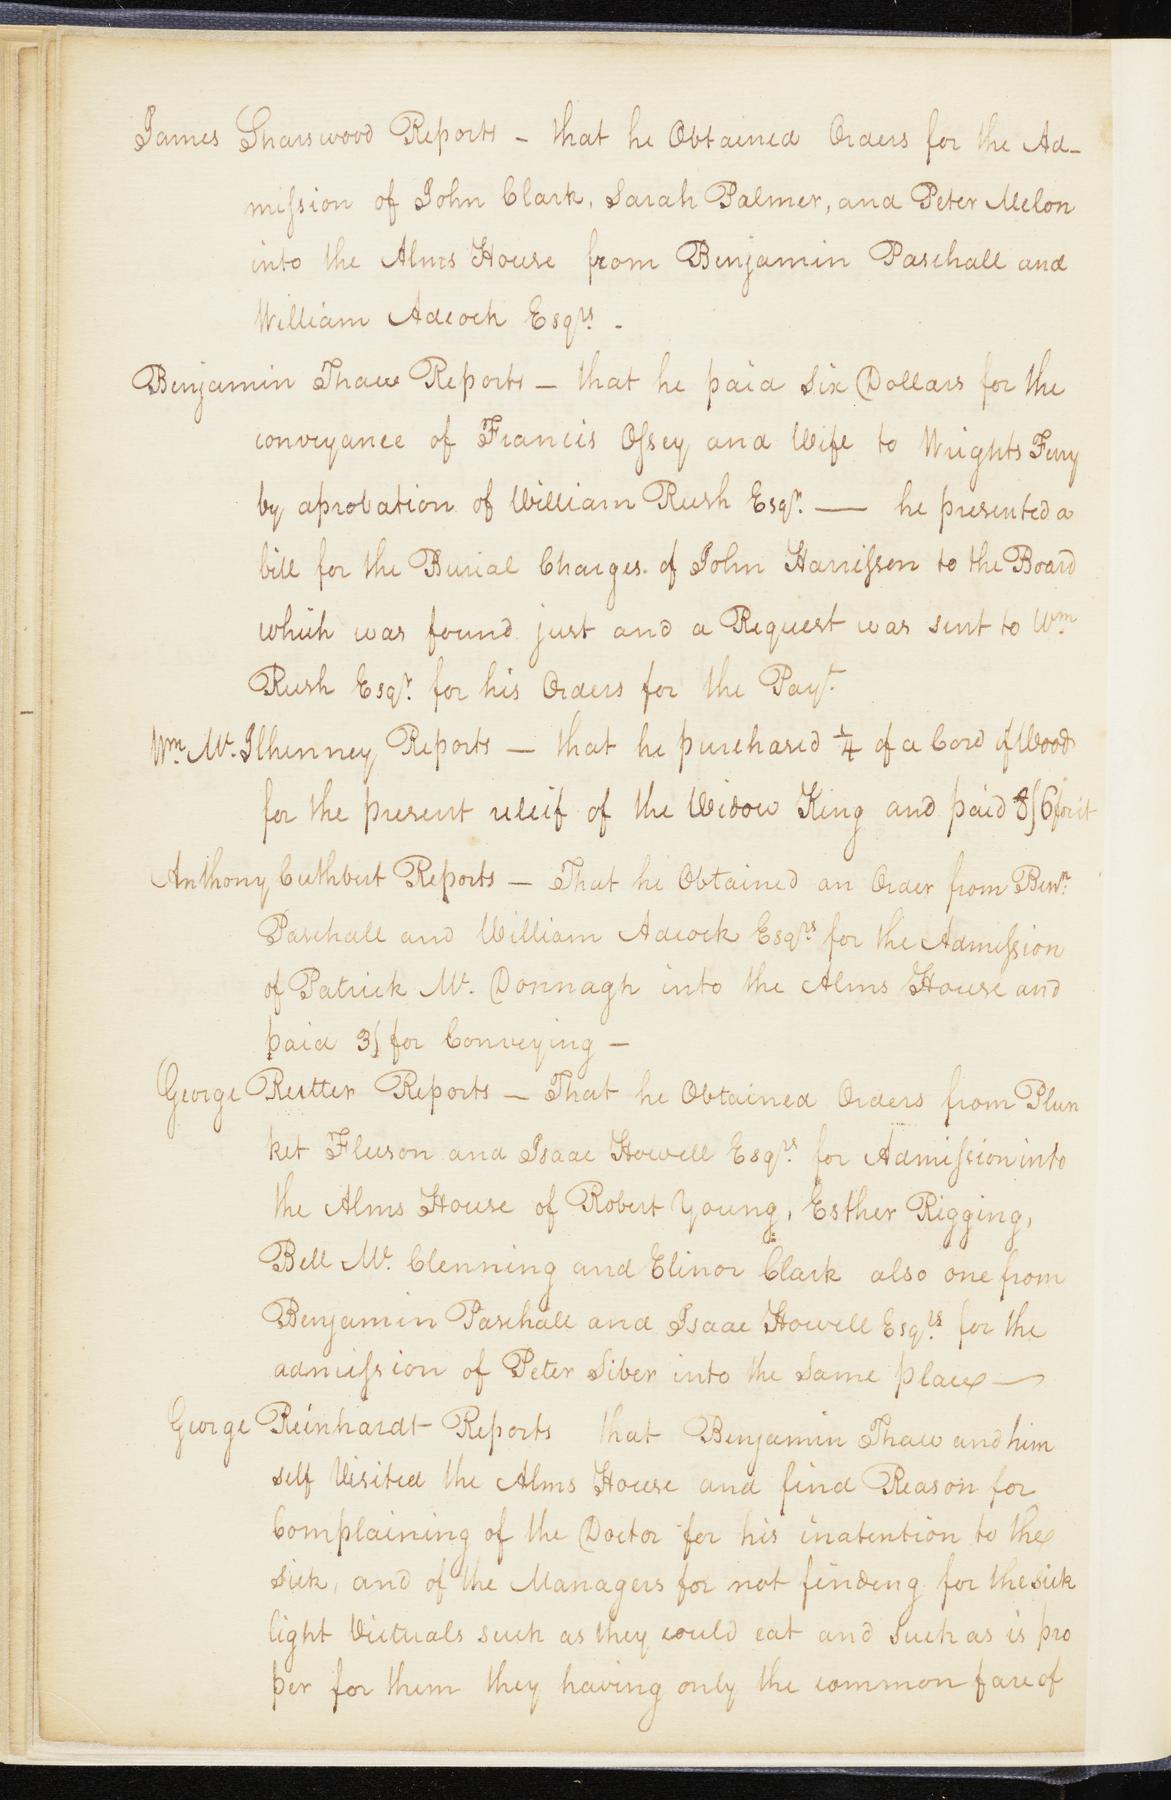 James Sharswood Reports – that he Obtained Orders for the Ad-
miſsion of John Clark, Sarah Palmer, and Peter Melon
into the Alms House from Benjamin Paschall and
William Adcock Esqrs. -
Benjamin Thaw Reports – that he paid Six Dollars for the
conveyance of Francis Oſsey and Wife to Wrights Ferry
by aprobation of William Rush Esqr. — he presented a
bill for the Burial Charges of John Harriſson to the Board
which was found just and a Request was sent to Wm.
Rush Esqr. for his Orders for the Payt.
Wm. Mc. Ilhenney Reports – that he purchased ¼ of a Cord of Wood
for the present releif of the Widow King and paid 8/6 for it
Anthony Cuthbert Reports – That he Obtained an Order from Benn.
Paschall and William Adcock Esqrs for the Admiſsion
of Patrick Mc. Donnagh into the Alms House and
paid 3/ for Conveying –
George Reutter Reports – That he Obtained Orders from Plun
ket Fleeson and Isaac Howell Esqrs. for Admiſsion into
the Alms House of Robert Young, Esther Rigging,
Bell Mc. Clenning and Elinor Clark also one from
Benjamin Paschall and Isaac Howell Esqrs. for the
admiſsion of Peter Siber into the Same place —
George Reinhardt Reports that Benjamin Thaw and him
self Visited the Alms House and find Reason for
Complaining of the Doctor for his inatention to the
Sick, and of the Managers for not finding for the sick
light Victuals such as they could eat and Such as is pro
per for them they having only the common fare of